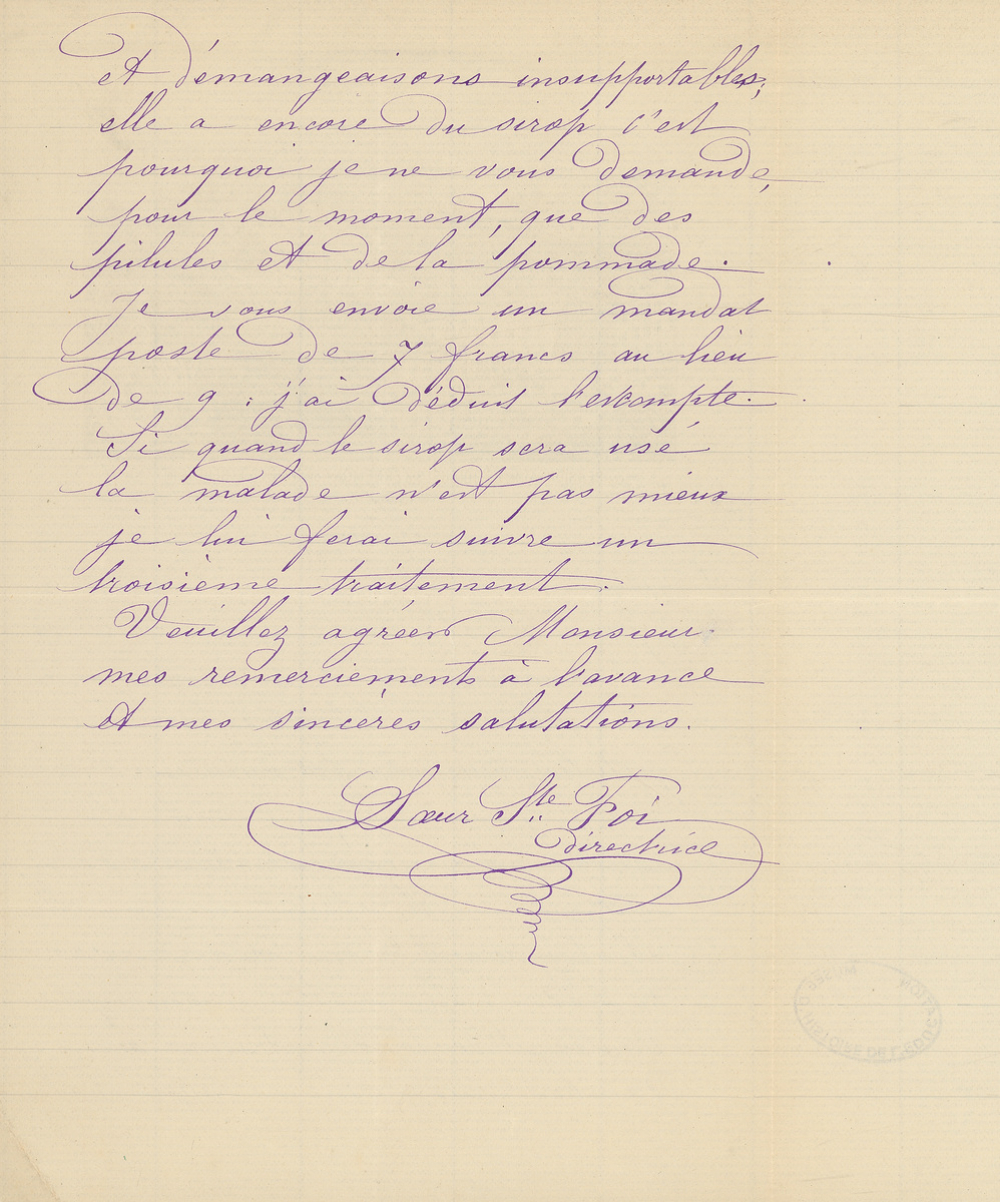 et démangeaisons insupportables;
elle a encore du sirop c'est
pourquoi je ne vous demande,
pour le moment, que des
pilules et de la pommade.
Je vous envoie un mandat
poste de 7 francs au lieu
de 9 : j'ai déduit l'escompte.
Si quand le sirop sera usé
la malade n'est pas mieux
je lui ferai suivre un
troisième traitement.
Veuillez agréer Monsieur
mes remerciements à l'avance
et mes sincères salutations.
Sœur Ste Foi
directrice